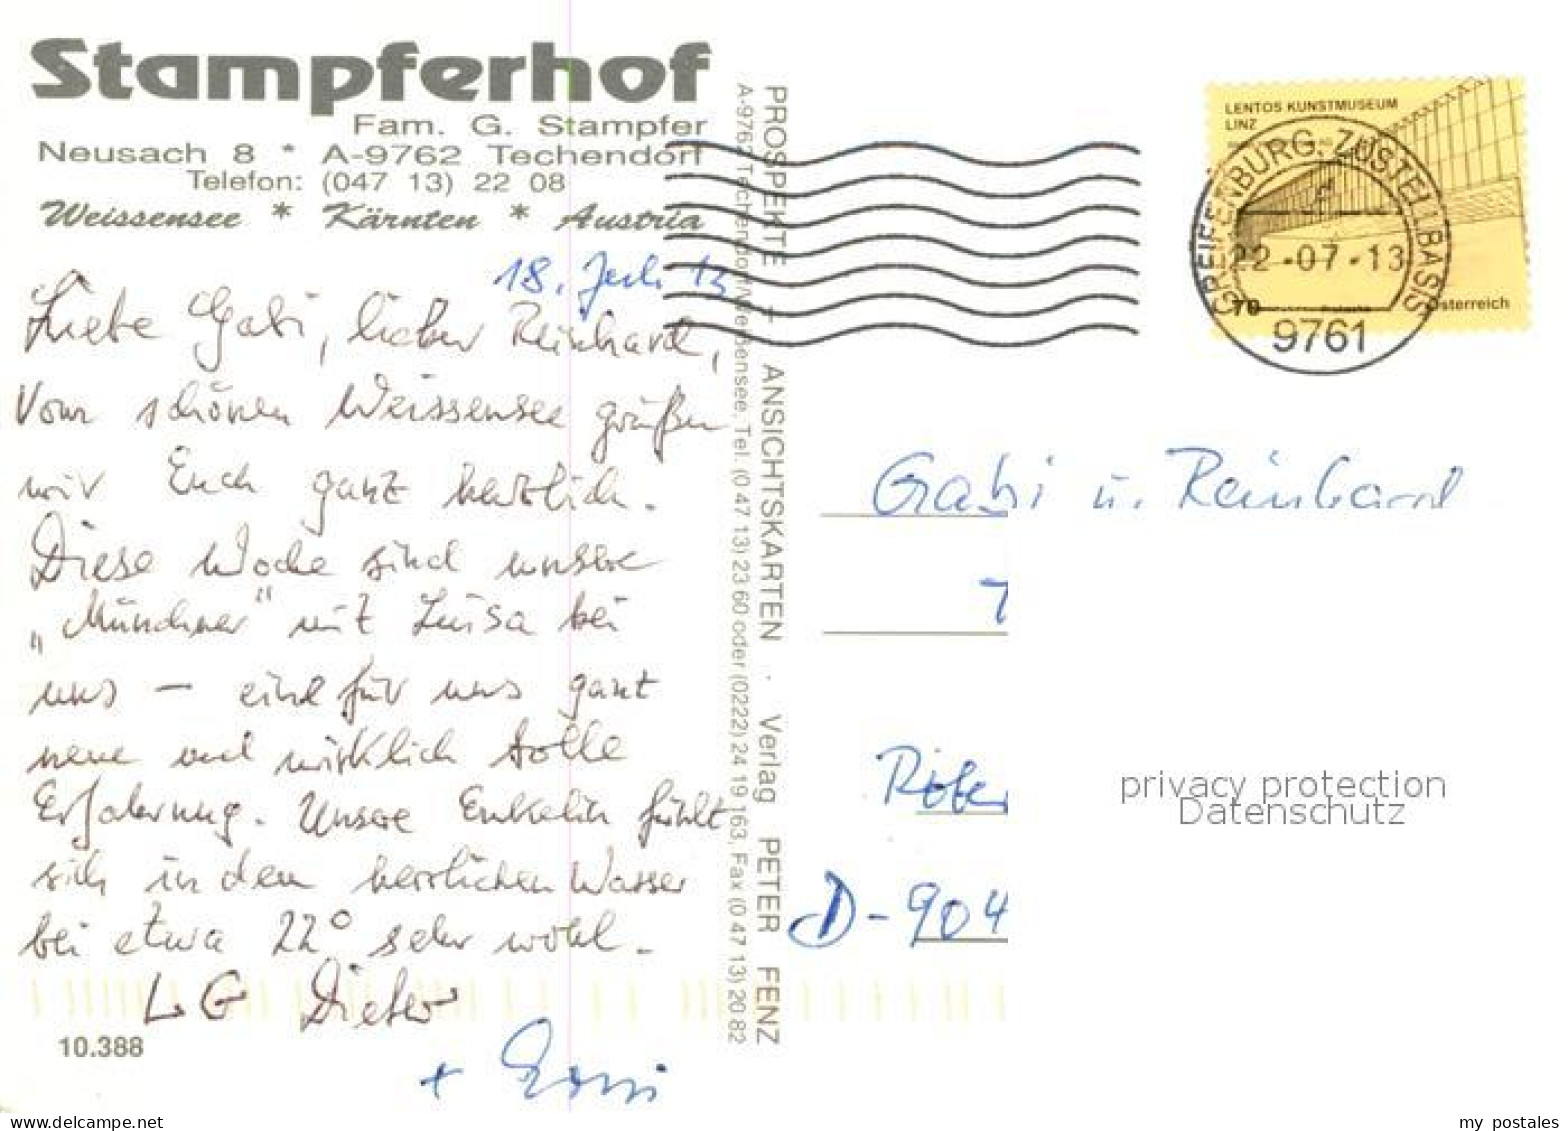 Stampferhof
Fam. G. Stampfer
Neusach 8 * A-9762 Techendorf
Telefon: (047 13) 22 08
Weissensee * Kärnten * Austria
18. Juli 13
Liebe Gabi, lieber Reinhard,
Vom schönen Weissensee grüßen
wir Euch ganz herzlich.
Diese Woche sind unsere
„Münchner" mit Luisa bei
uns – eine für uns ganz
neue und wirklich tolle
Erfahrung. Unsere Enkelin fühlt
sich in dem herrlichen Wasser
bei etwa 22° sehr wohl.
LG Dieter
+
10.388
PROSPEKTE + ANSICHTSKARTEN · Verlag PETER FENZ
A-9762 Techendorf/Weissensee, Tel. (0 47 13) 23 60 oder (0222) 24 19 163, Fax (0 47 13) 20 82
LENTOS KUNSTMUSEUM
LINZ
70
Österreich
GREIFENBURG, ZUSTELLBASIS
22-07-13
9761
Gabi u. Reinhard
D-904
privacy protection
Datenschutz
my postales